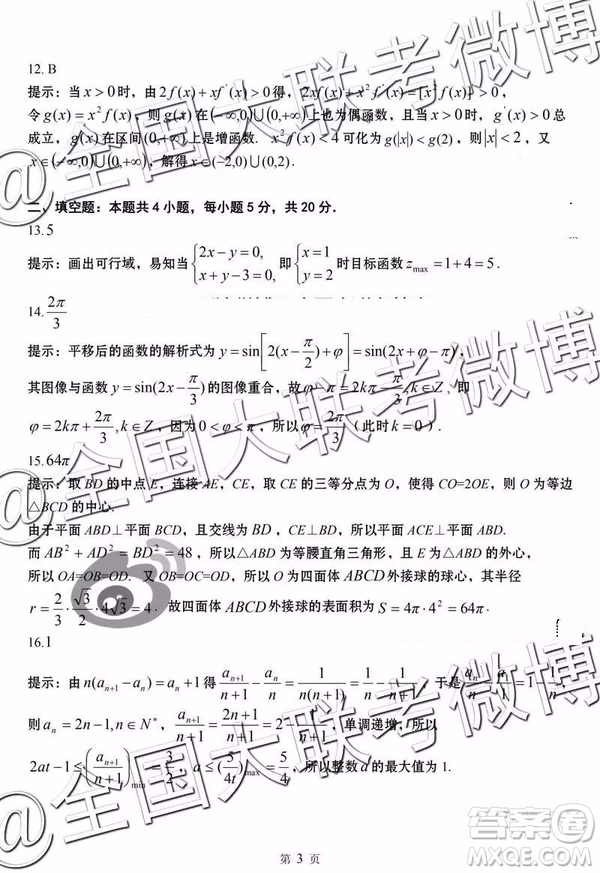 12. B
提示：当 x > 0 时，由 2f(x)+xf'(x)>0 得，2xf(x)+x²f'(x)=[x²f(x)]'>0，
令 g(x)=x²f(x)，则 g(x) 在(-∞,0)∪(0,+∞)上也为偶函数，且当 x>0 时，g'(x)>0 总
成立，g(x) 在区间(0,+∞)上是增函数. x²f(x)<4 可化为 g(|x|)<g(2)，则|x|<2，又
x∈(-∞,0)∪(0,+∞)，解得 x∈(-2,0)∪(0,2).
二、填空题：本题共 4 小题，每小题 5 分，共 20 分.
13.5
提示：画出可行域，易知当{2x-y=0, x+y-3=0, 即{x=1 y=2 时目标函数 z_max=1+4=5.
14. 2π/3
提示：平移后的函数的解析式为 y=sin[2(x-π/2)+φ]=sin(2x+φ-π)，
其图像与函数 y=sin(2x-π/3) 的图像重合，故 φ-π=2kπ-π/3, k∈Z，即
φ=2kπ+2π/3, k∈Z，因为 0<φ<π，所以 φ=2π/3（此时 k=0）.
15.64π
提示：取 BD 的中点 E，连接 AE，CE，取 CE 的三等分点为 O，使得 CO=2OE，则 O 为等边
△BCD 的中心.
由于平面 ABD⊥平面 BCD，且交线为 BD，CE⊥BD，所以平面 ACE⊥平面 ABD.
而 AB²+AD²=BD²=48，所以△ABD 为等腰直角三角形，且 E 为△ABD 的外心，
所以 OA=OB=OD. 又 OB=OC=OD，所以 O 为四面体 ABCD 外接球的球心，其半径
r=2/3·√3/2·4√3=4. 故四面体 ABCD 外接球的表面积为 S=4π·4²=64π.
16.1
提示：由 n(a_{n+1}-a_n)=a_n+1 得 a_{n+1}/(n+1)-a_n/n=1/(n(n+1))=1/n-1/(n+1)
则 a_n=2n-1, n∈N*，a_{n+1}/(n+1)=(2n+1)/(n+1)=2-1/(n+1)，单调递增，所以
2at-1≤(a_{n+1}/(n+1))_min=3/2，a≤(5/4t)_max=5/4，所以整数 a 的最大值为 1.
第 3 页
@全国大联考微博
答案圈
MXQE.COM